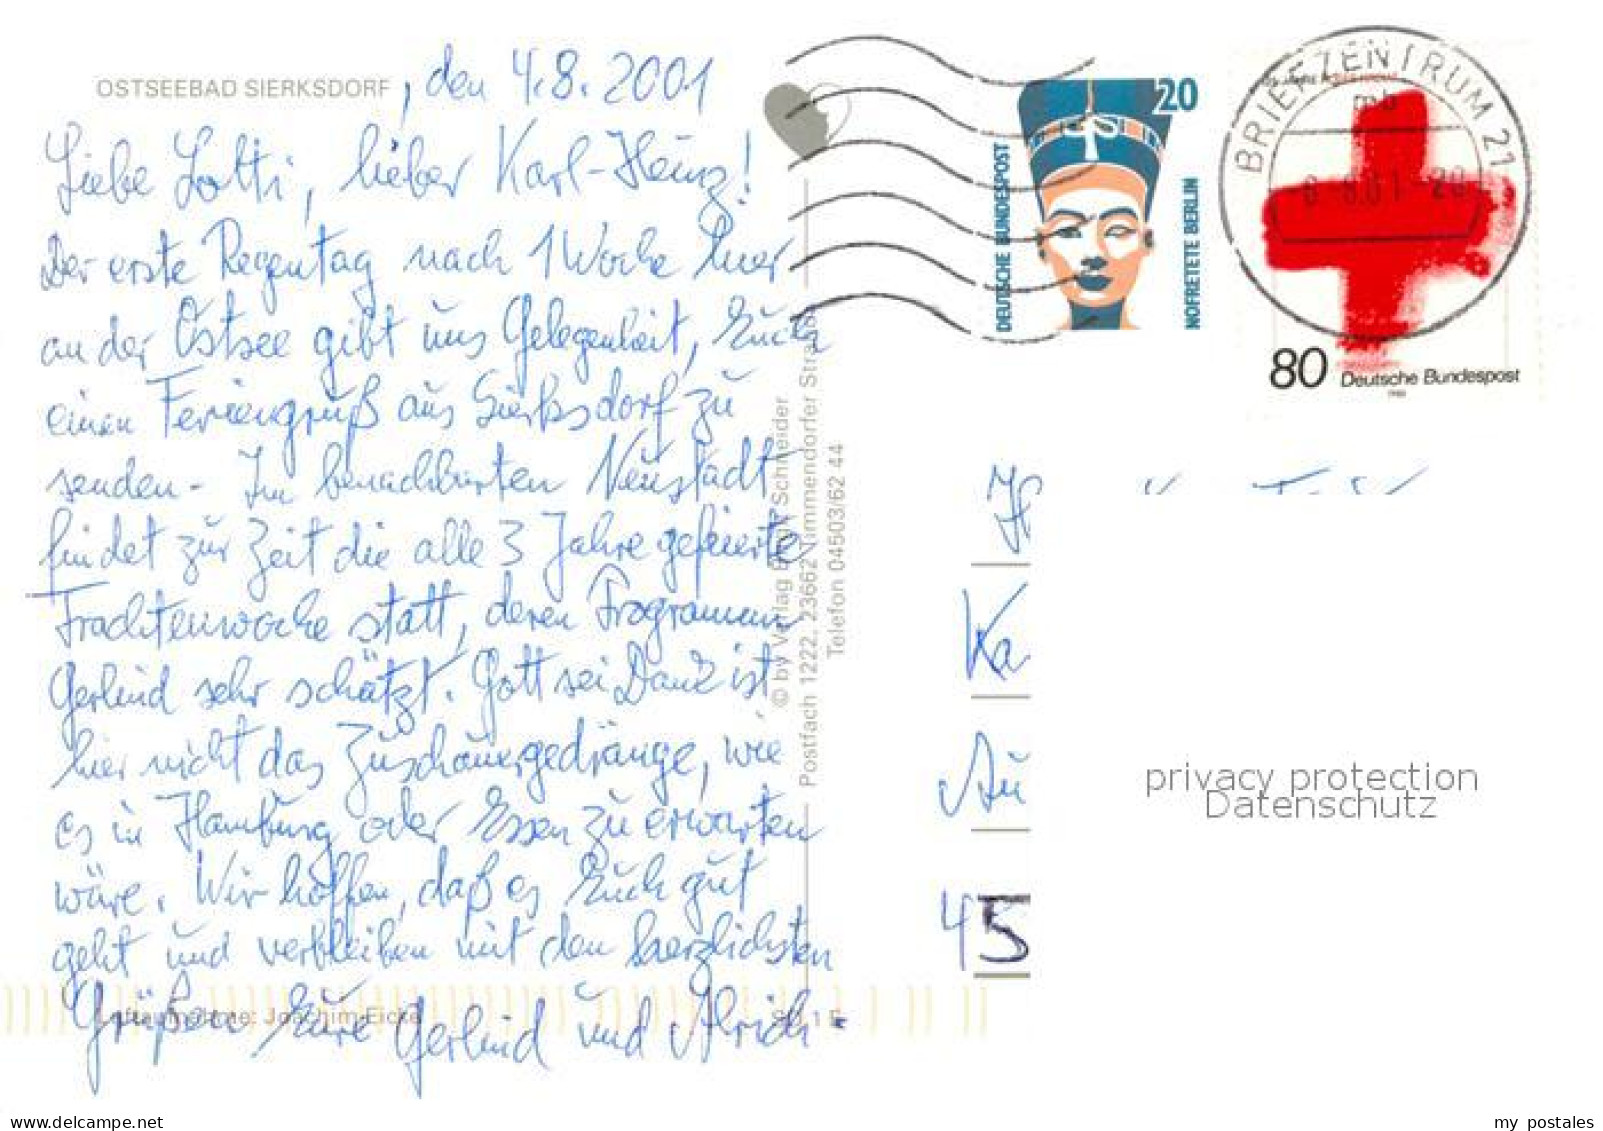 OSTSEEBAD SIERKSDORF, den 4.8.2001
Liebe Lotti, lieber Karl-Heinz!
Der erste Regentag nach 1 Woche hier
an der Ostsee gibt uns Gelegenheit, Euch
einen Feriengruß aus Sierksdorf zu
senden. Im benachbarten Neustadt
findet zur Zeit die alle 3 Jahre gefeierte
Trachtenwoche statt, deren Programm
Gerlind sehr schätzt. Gott sei Dank ist
hier nicht das Zuschauergedränge, wie
es in Hamburg oder Essen zu erwarten
wäre. Wir hoffen, daß es Euch gut
geht und verbleiben mit den herzlichsten
Grüßen Eure Gerlind und Ulrich.
Luftaufnahme: Joachim Eicke
© by Verlag Schneider
Postfach 1222, 23662 Timmendorfer Strand
Telefon 04503/62 44
20
DEUTSCHE BUNDESPOST
NOFRETETE BERLIN
BRIEFZENTRUM 21
mb
8.01-20
80 Deutsche Bundespost
1988
Ka
Au
45
privacy protection
Datenschutz
my postales